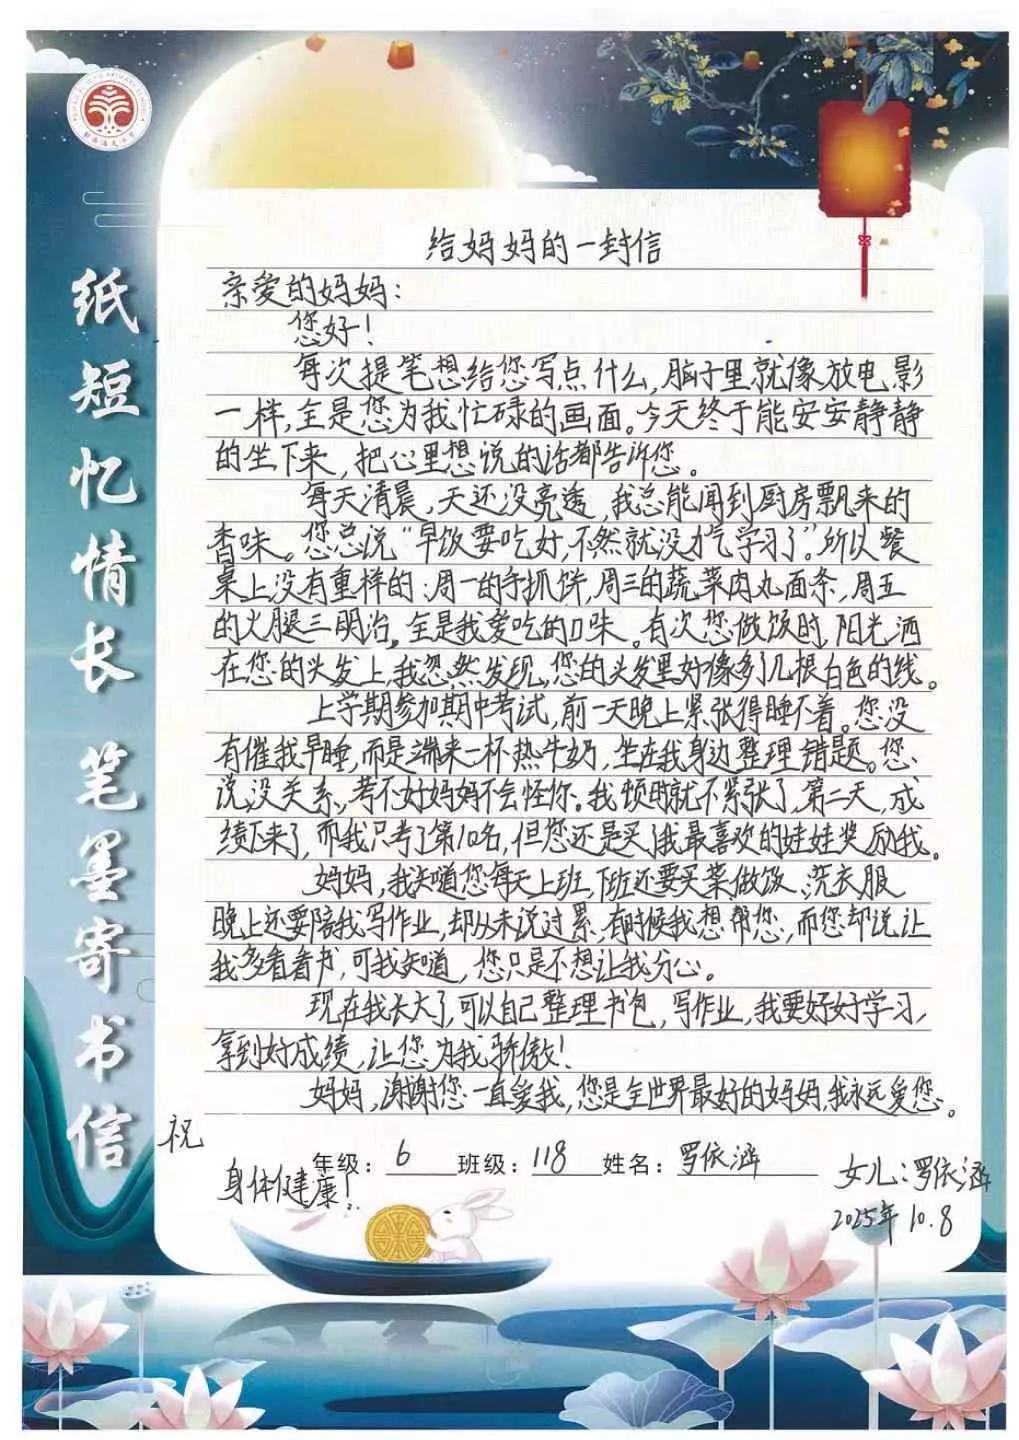 给妈妈的一封信
亲爱的妈妈：
您好！
每次提笔想给您写点什么，脑子里就像放电影
一样，全是您为我忙碌的画面。今天终于能安安静静
的坐下来，把心里想说的话都告诉您。
每天清晨，天还没亮透，我总能闻到厨房飘来的
香味。您总说“早饭要吃好，不然就没力气学习了”。所以餐
桌上没有重样的：周一的手抓饼，周三的蔬菜肉丸面条，周五
的火腿三明治。全是我爱吃的口味。有次您做饭时，阳光洒
在您的头发上，我忽然发现，您的头发里好像多了几根白色的线。
上学期参加期中考试，前一天晚上紧张得睡不着。您没
有催我早睡，而是端来一杯热牛奶，坐在我身边整理错题。您
说，没关系，考不好妈妈不会怪你。我顿时就不紧张了，第二天，成
绩下来了，而我只考了第10名，但您还是买了我最喜欢的娃娃奖励我。
妈妈，我知道您每天上班，下班还要买菜做饭、洗衣服
晚上还要陪我写作业，却从未说过累，有时候我想帮您，而您却说让
我多看看书，可我知道，您只是不想让我分心。
现在我长大了，可以自己整理书包，写作业，我要好好学习，
拿到好成绩，让您为我骄傲！
妈妈，谢谢您一直爱我，您是全世界最好的妈妈，我永远爱您。
祝
年级：6 班级：118 姓名：罗依涵
身体健康！
女儿：罗依涵
2025年10.8
纸短忆情长 笔墨寄书信